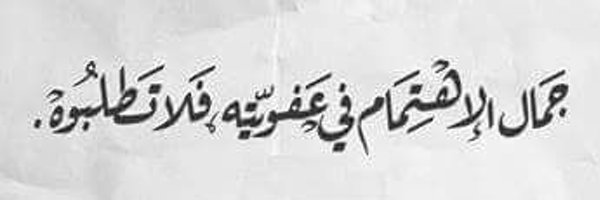 جَمَال الإهْتِمَام في عَفويّته، فَلا تَطلبُوهْ.